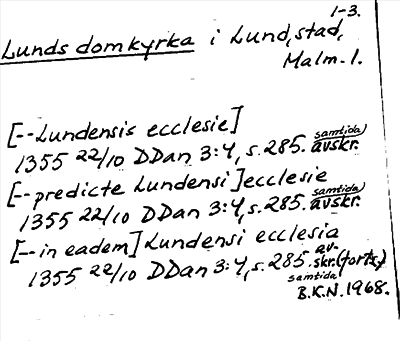 1-3.
Lunds domkyrka i Lund, stad,
Malm. l.
[--Lundensis ecclesie]
1355 22/10 DDan 3:4, s. 285. samtida avskr.
[--predicte Lundensi]ecclesie
1355 22/10 DDan 3:4, s. 285. samtida avskr.
[--in eadem]Lundensi ecclesia
1355 22/10 DDan 3:4, s. 285. samtida av-skr. (forts,)
B.K.N. 1968.